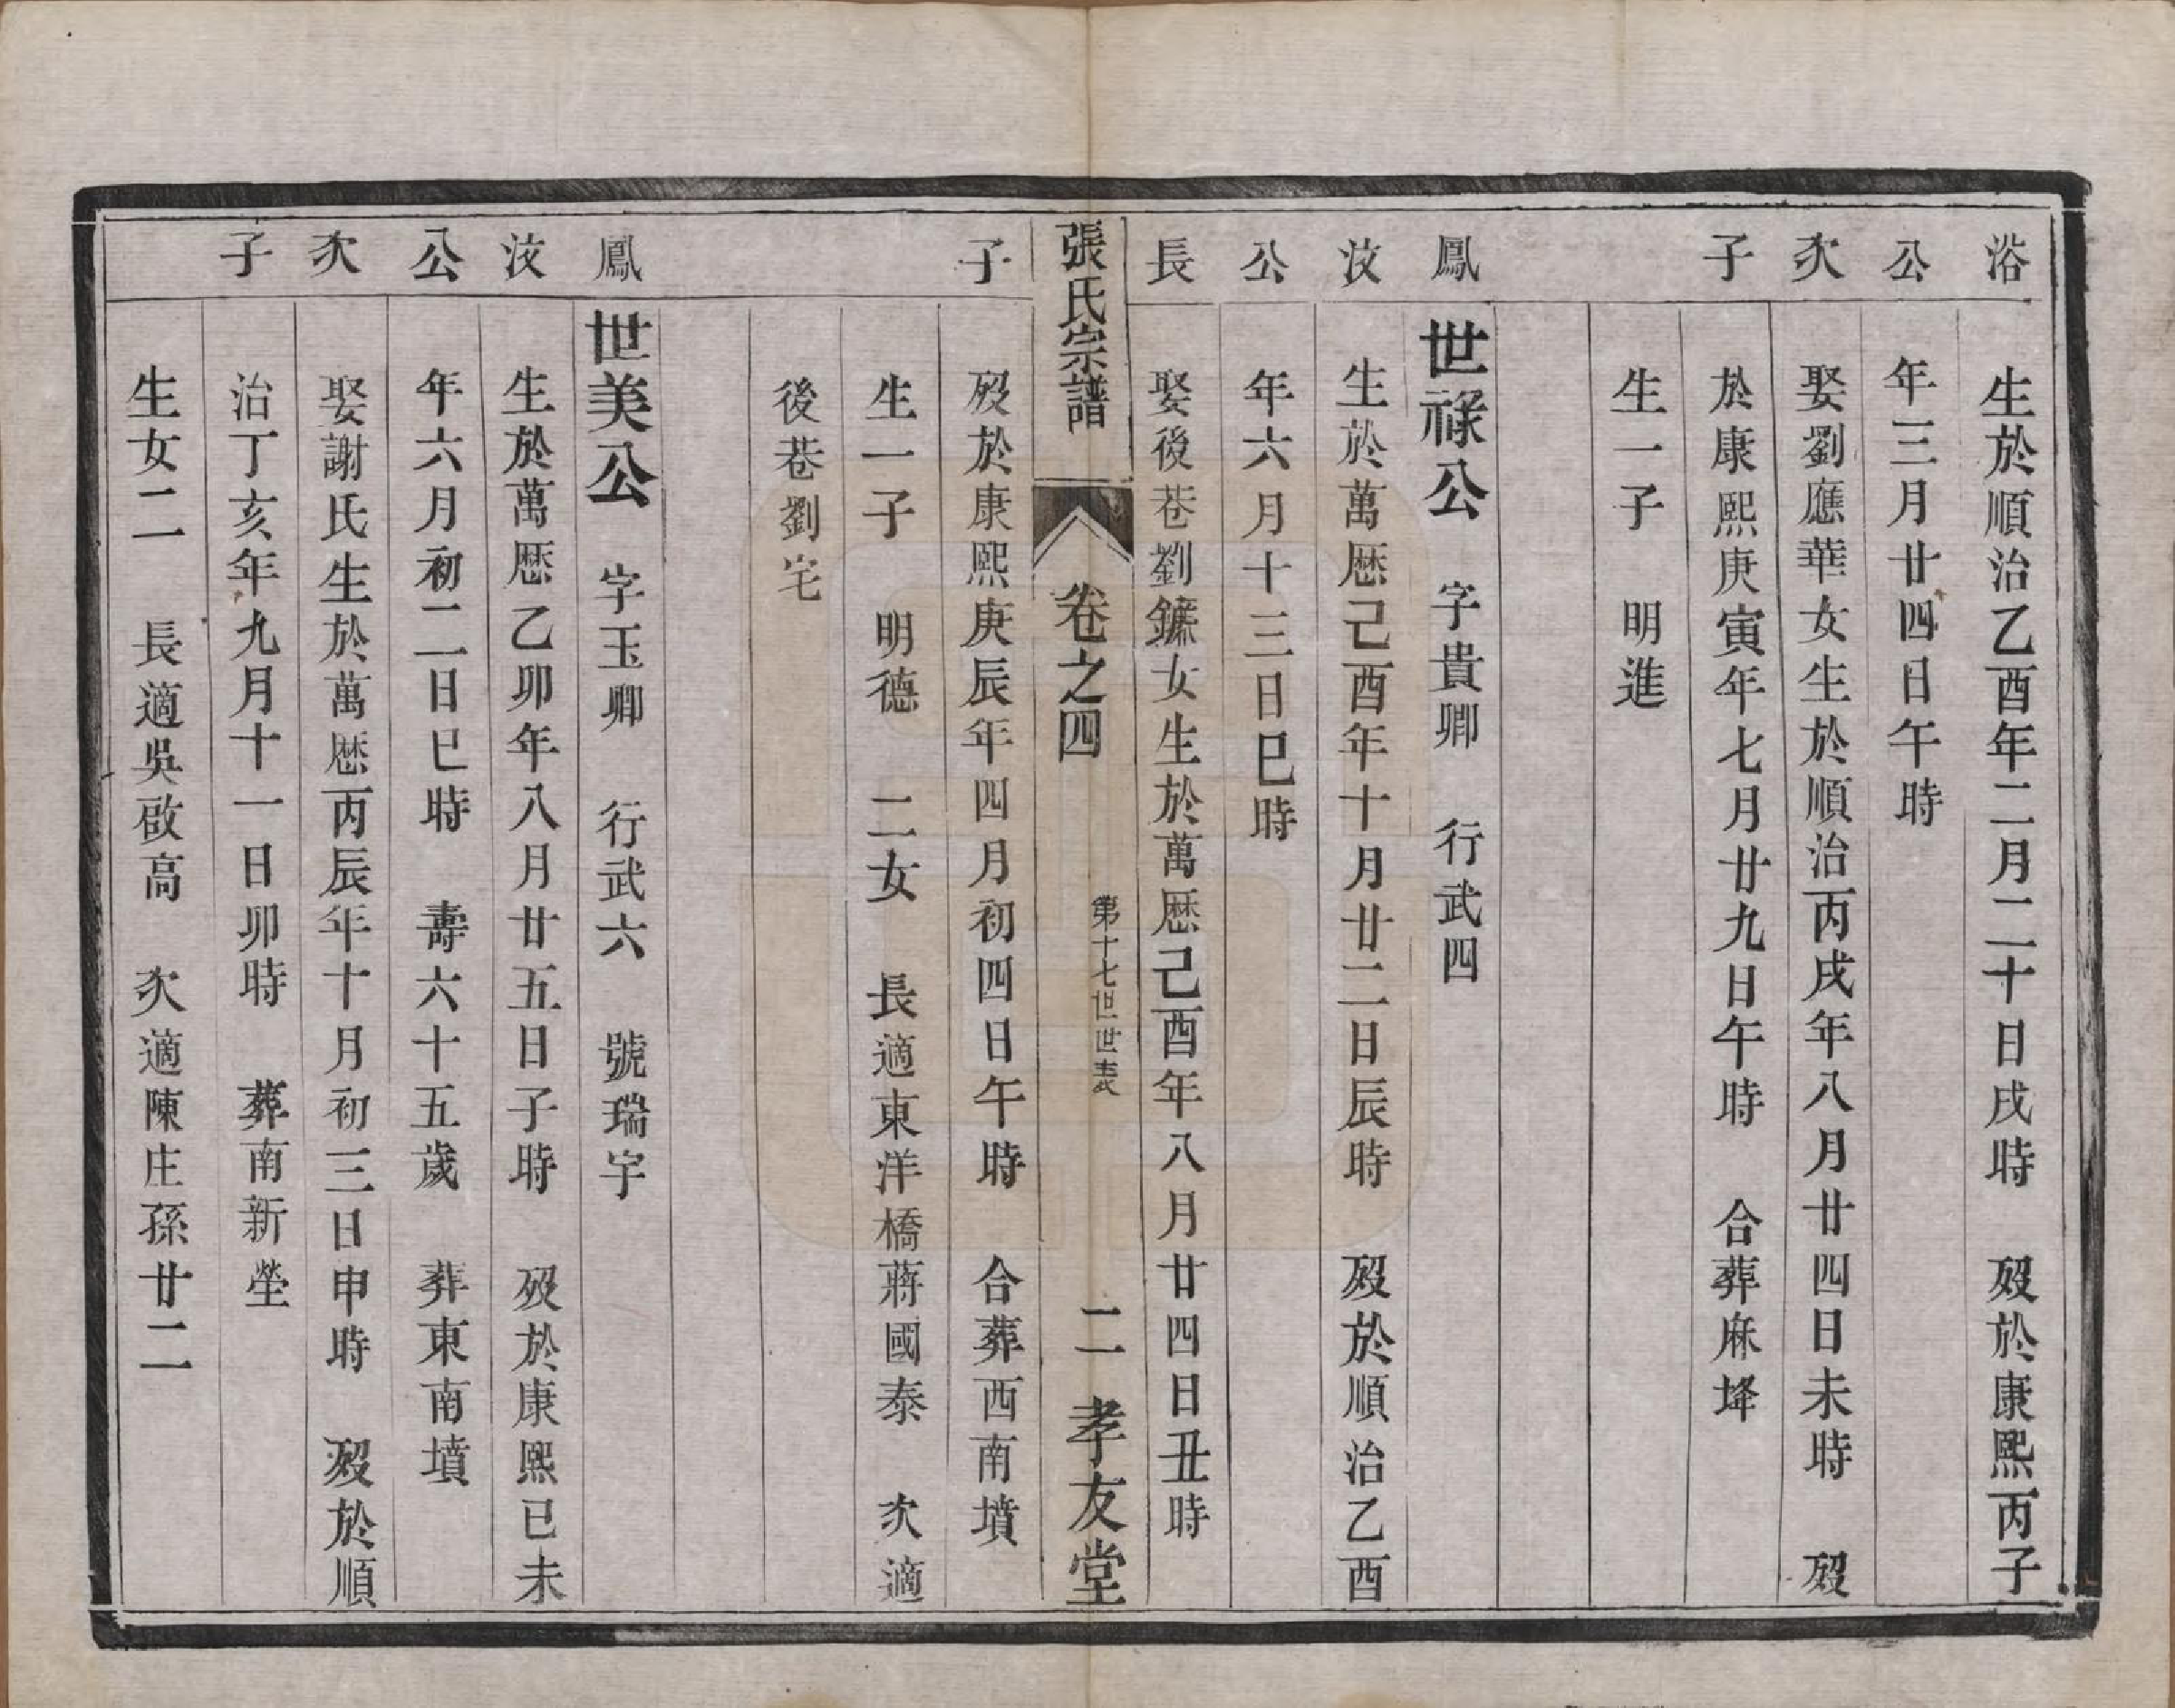 浴 生於順治乙酉年二月二十日戌時 歿於康熙丙子
公 年三月廿四日午時
次 娶劉應華女生於順治丙戌年八月廿四日未時 歿
子 於康熙庚寅年七月廿九日午時 合葬麻垏
生一子 明進
鳳 世祿公 字貴卿 行武四
汶 生於萬歷己酉年十月廿二日辰時 歿於順治乙酉
公 年六月十三日巳時
長 娶後巷劉鑣女生於萬歷己酉年八月廿四日丑時
張氏宗譜 卷之四 第十七世世表 二 孝友堂
子 歿於康熙庚辰年四月初四日午時 合葬西南墳
生一子 明德 二女 長適東洋橋蔣國泰 次適
後巷劉宅
鳳 世美公 字玉卿 行武六 號瑞宇
汶 生於萬歷乙卯年八月廿五日子時 歿於康熙已未
公 年六月初二日巳時 壽六十五歲 葬東南墳
次 娶謝氏生於萬歷丙辰年十月初三日申時 歿於順
子 治丁亥年九月十一日卯時 葬南新塋
生女二 長適吳啟高 次適陳庄孫廿二